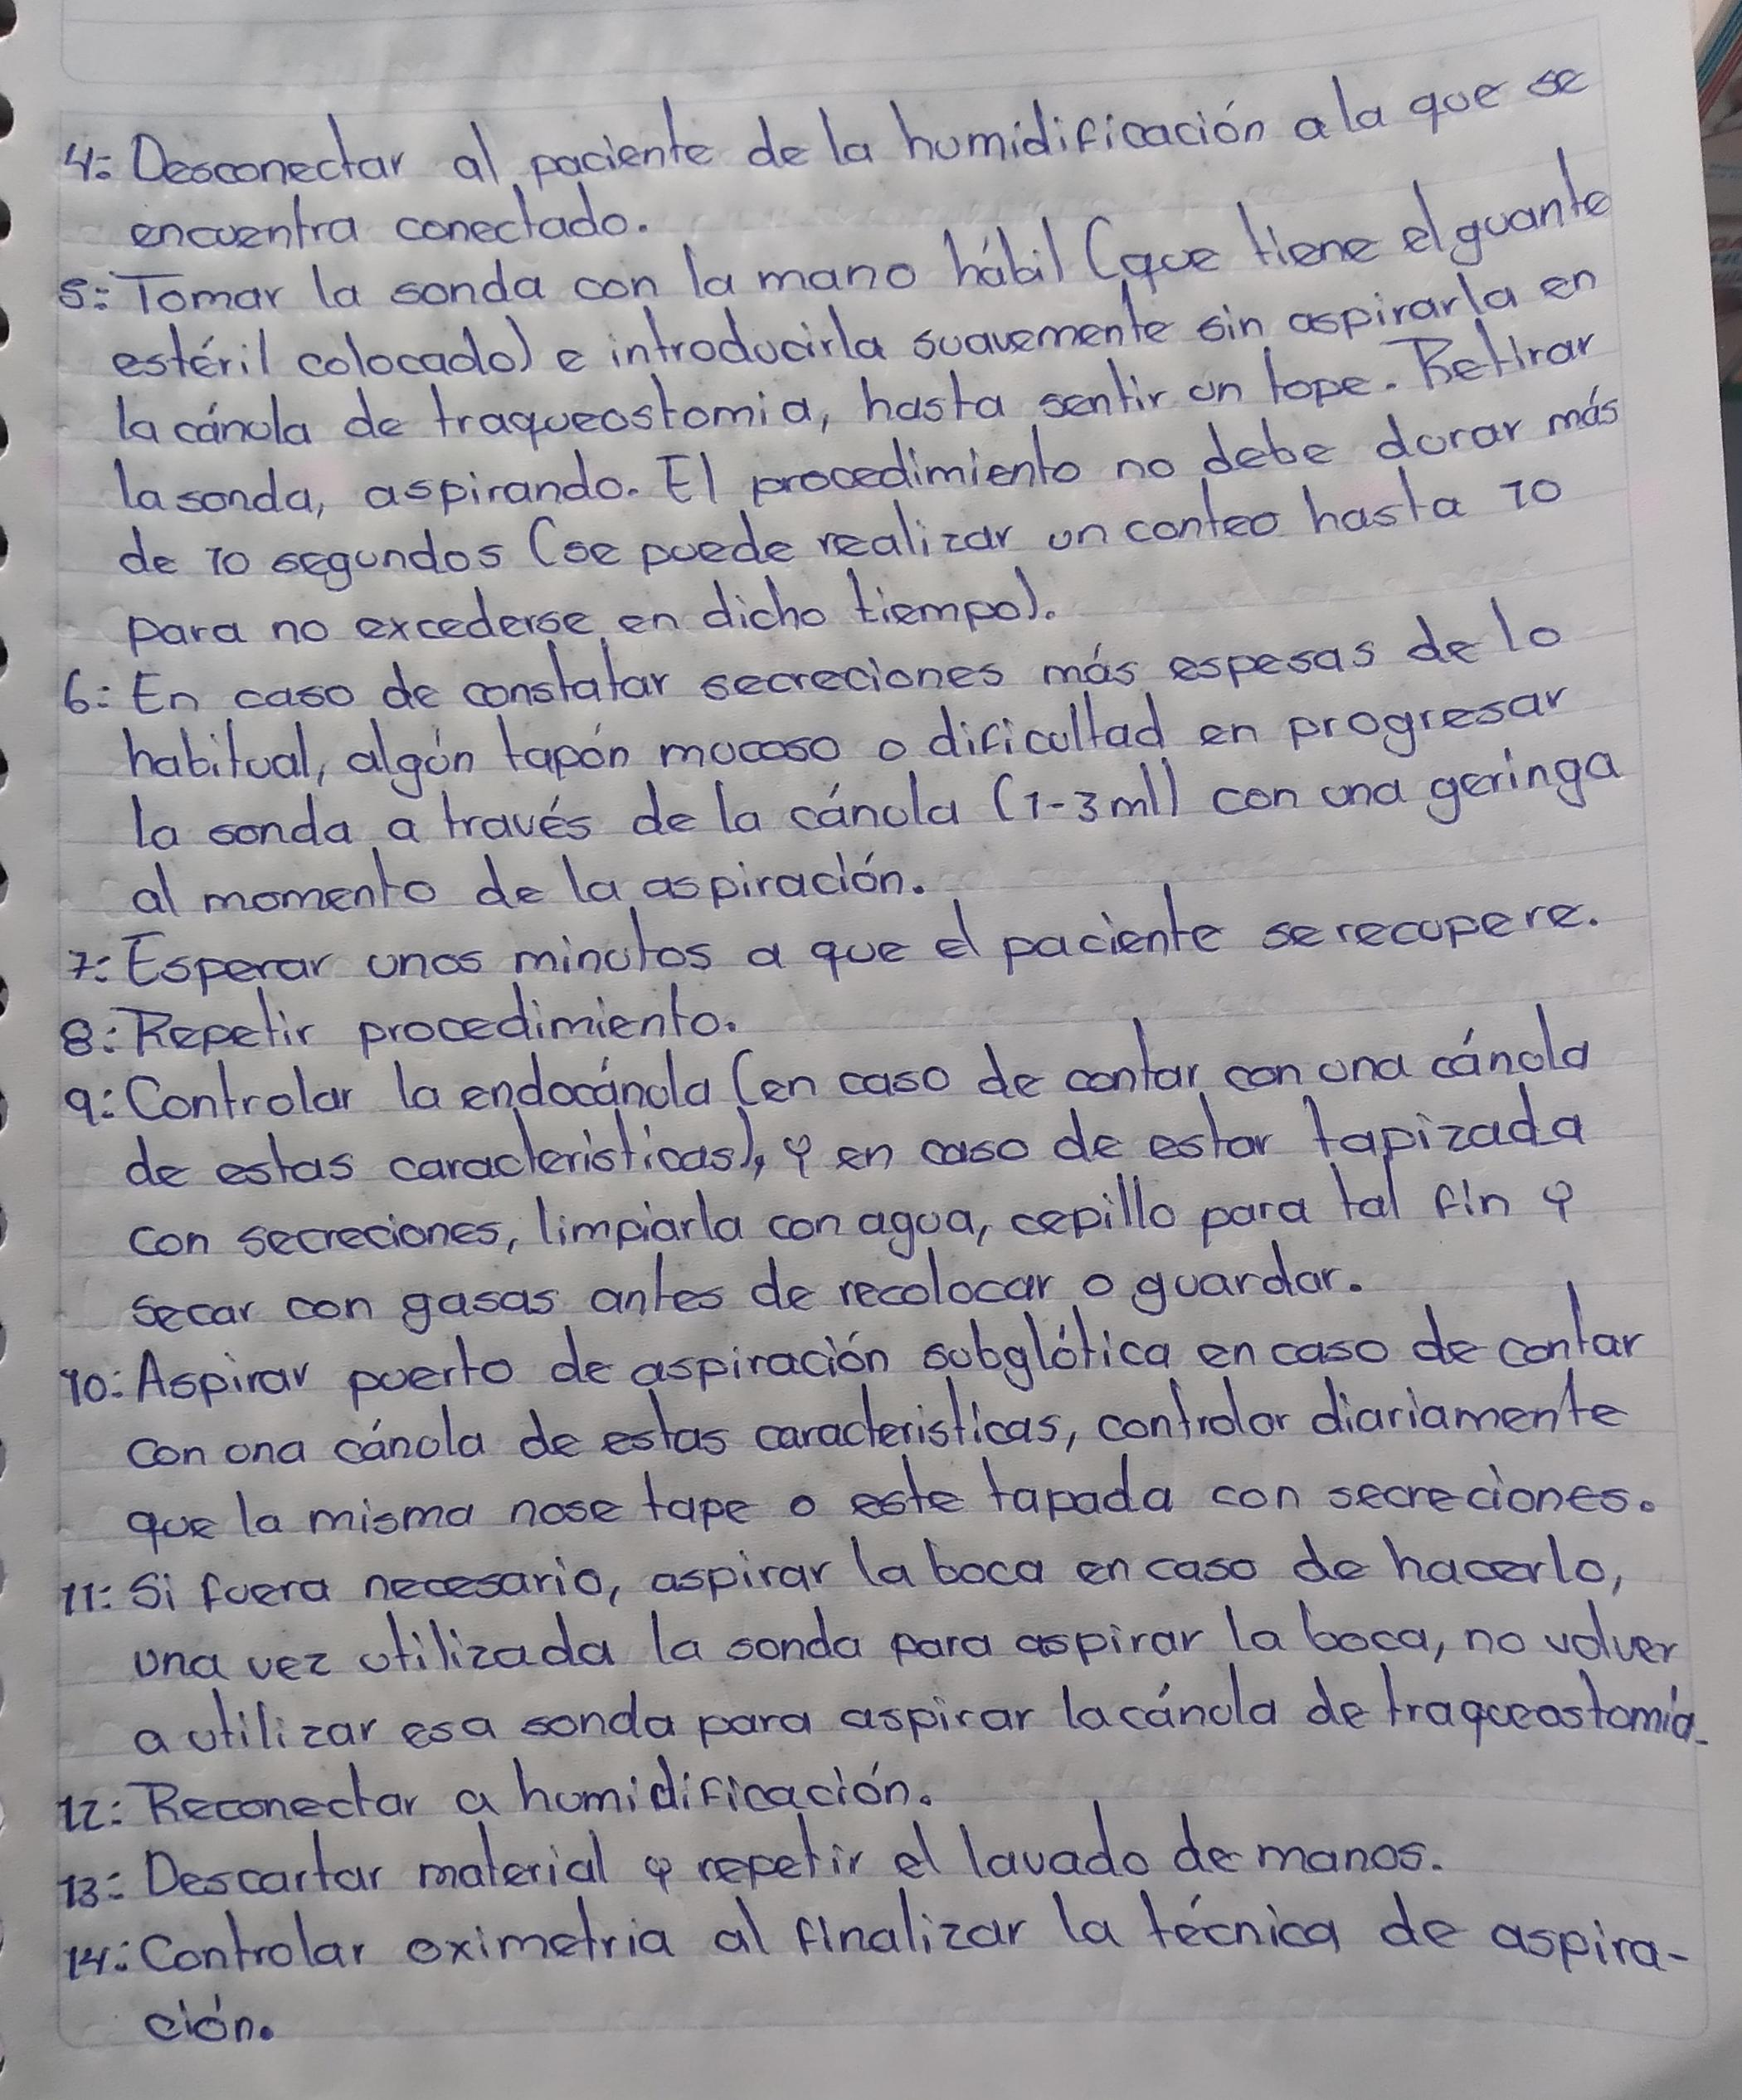 4: Desconectar al paciente de la humidificación a la que se
encuentra conectado.
5: Tomar la sonda con la mano hábil (que tiene el guante
estéril colocado) e introducirla suavemente sin aspirarla en
la cánula de traqueostomia, hasta sentir un tope. Retirar
la sonda, aspirando. El procedimiento no debe durar más
de 10 segundos (se puede realizar un conteo hasta 10
para no excederse en dicho tiempo).
6: En caso de constatar secreciones más espesas de lo
habitual, algún tapón mucoso o dificultad en progresar
la sonda a través de la cánula (1-3 ml) con una geringa
al momento de la aspiración.
7: Esperar unos minutos a que el paciente se recupere.
8: Repetir procedimiento.
9: Controlar la endocánula (en caso de contar con una cánula
de estas caracteristicas), y en caso de estar tapizada
con secreciones, limpiarla con agua, cepillo para tal fin y
secar con gasas antes de recolocar o guardar.
10: Aspirar puerto de aspiración subglótica en caso de contar
con una cánula de estas caracteristicas, controlar diariamente
que la misma nose tape o este tapada con secreciones.
11: Si fuera necesario, aspirar la boca en caso de hacerlo,
una vez utilizada la sonda para aspirar la boca, no volver
a utilizar esa sonda para aspirar la cánula de traqueostomia.
12: Reconectar a humidificación.
13: Descartar material y repetir el lavado de manos.
14: Controlar oximetria al finalizar la técnica de aspira-
ción.